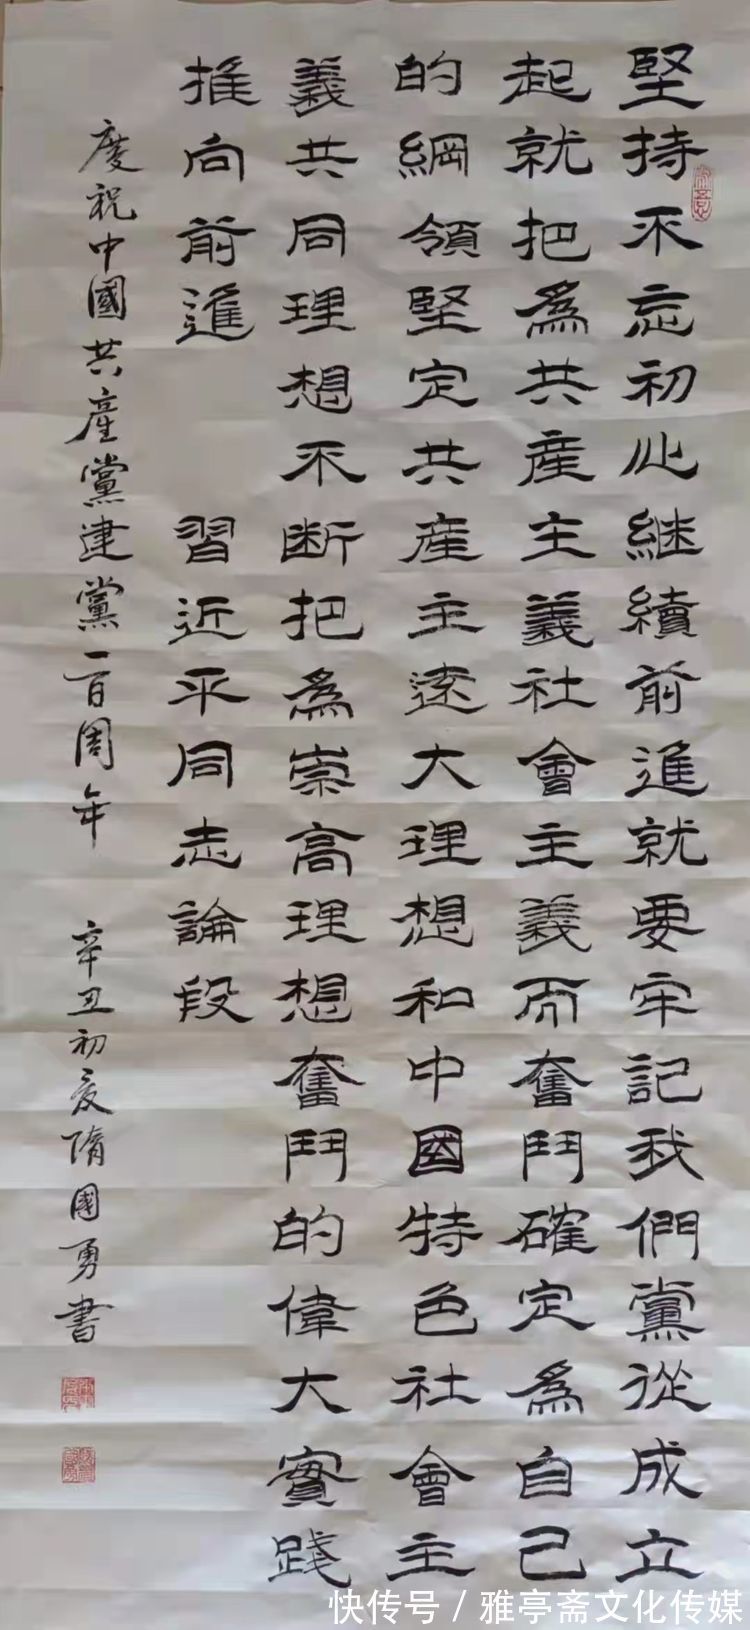 堅持不忘初心継續前進就要牢記我們黨從成立
起就把為共産主義社會主義而奮鬥確定為自己
的綱領堅定共産主遠大理想和中國特色社會主
義共同理想不断把為崇高理想奮鬥的偉大實踐
推向前進 習近平同志論段
慶祝中國共產黨建黨一百周年 辛丑初夏隋國勇書
快传号 / 雅亭斋文化传媒